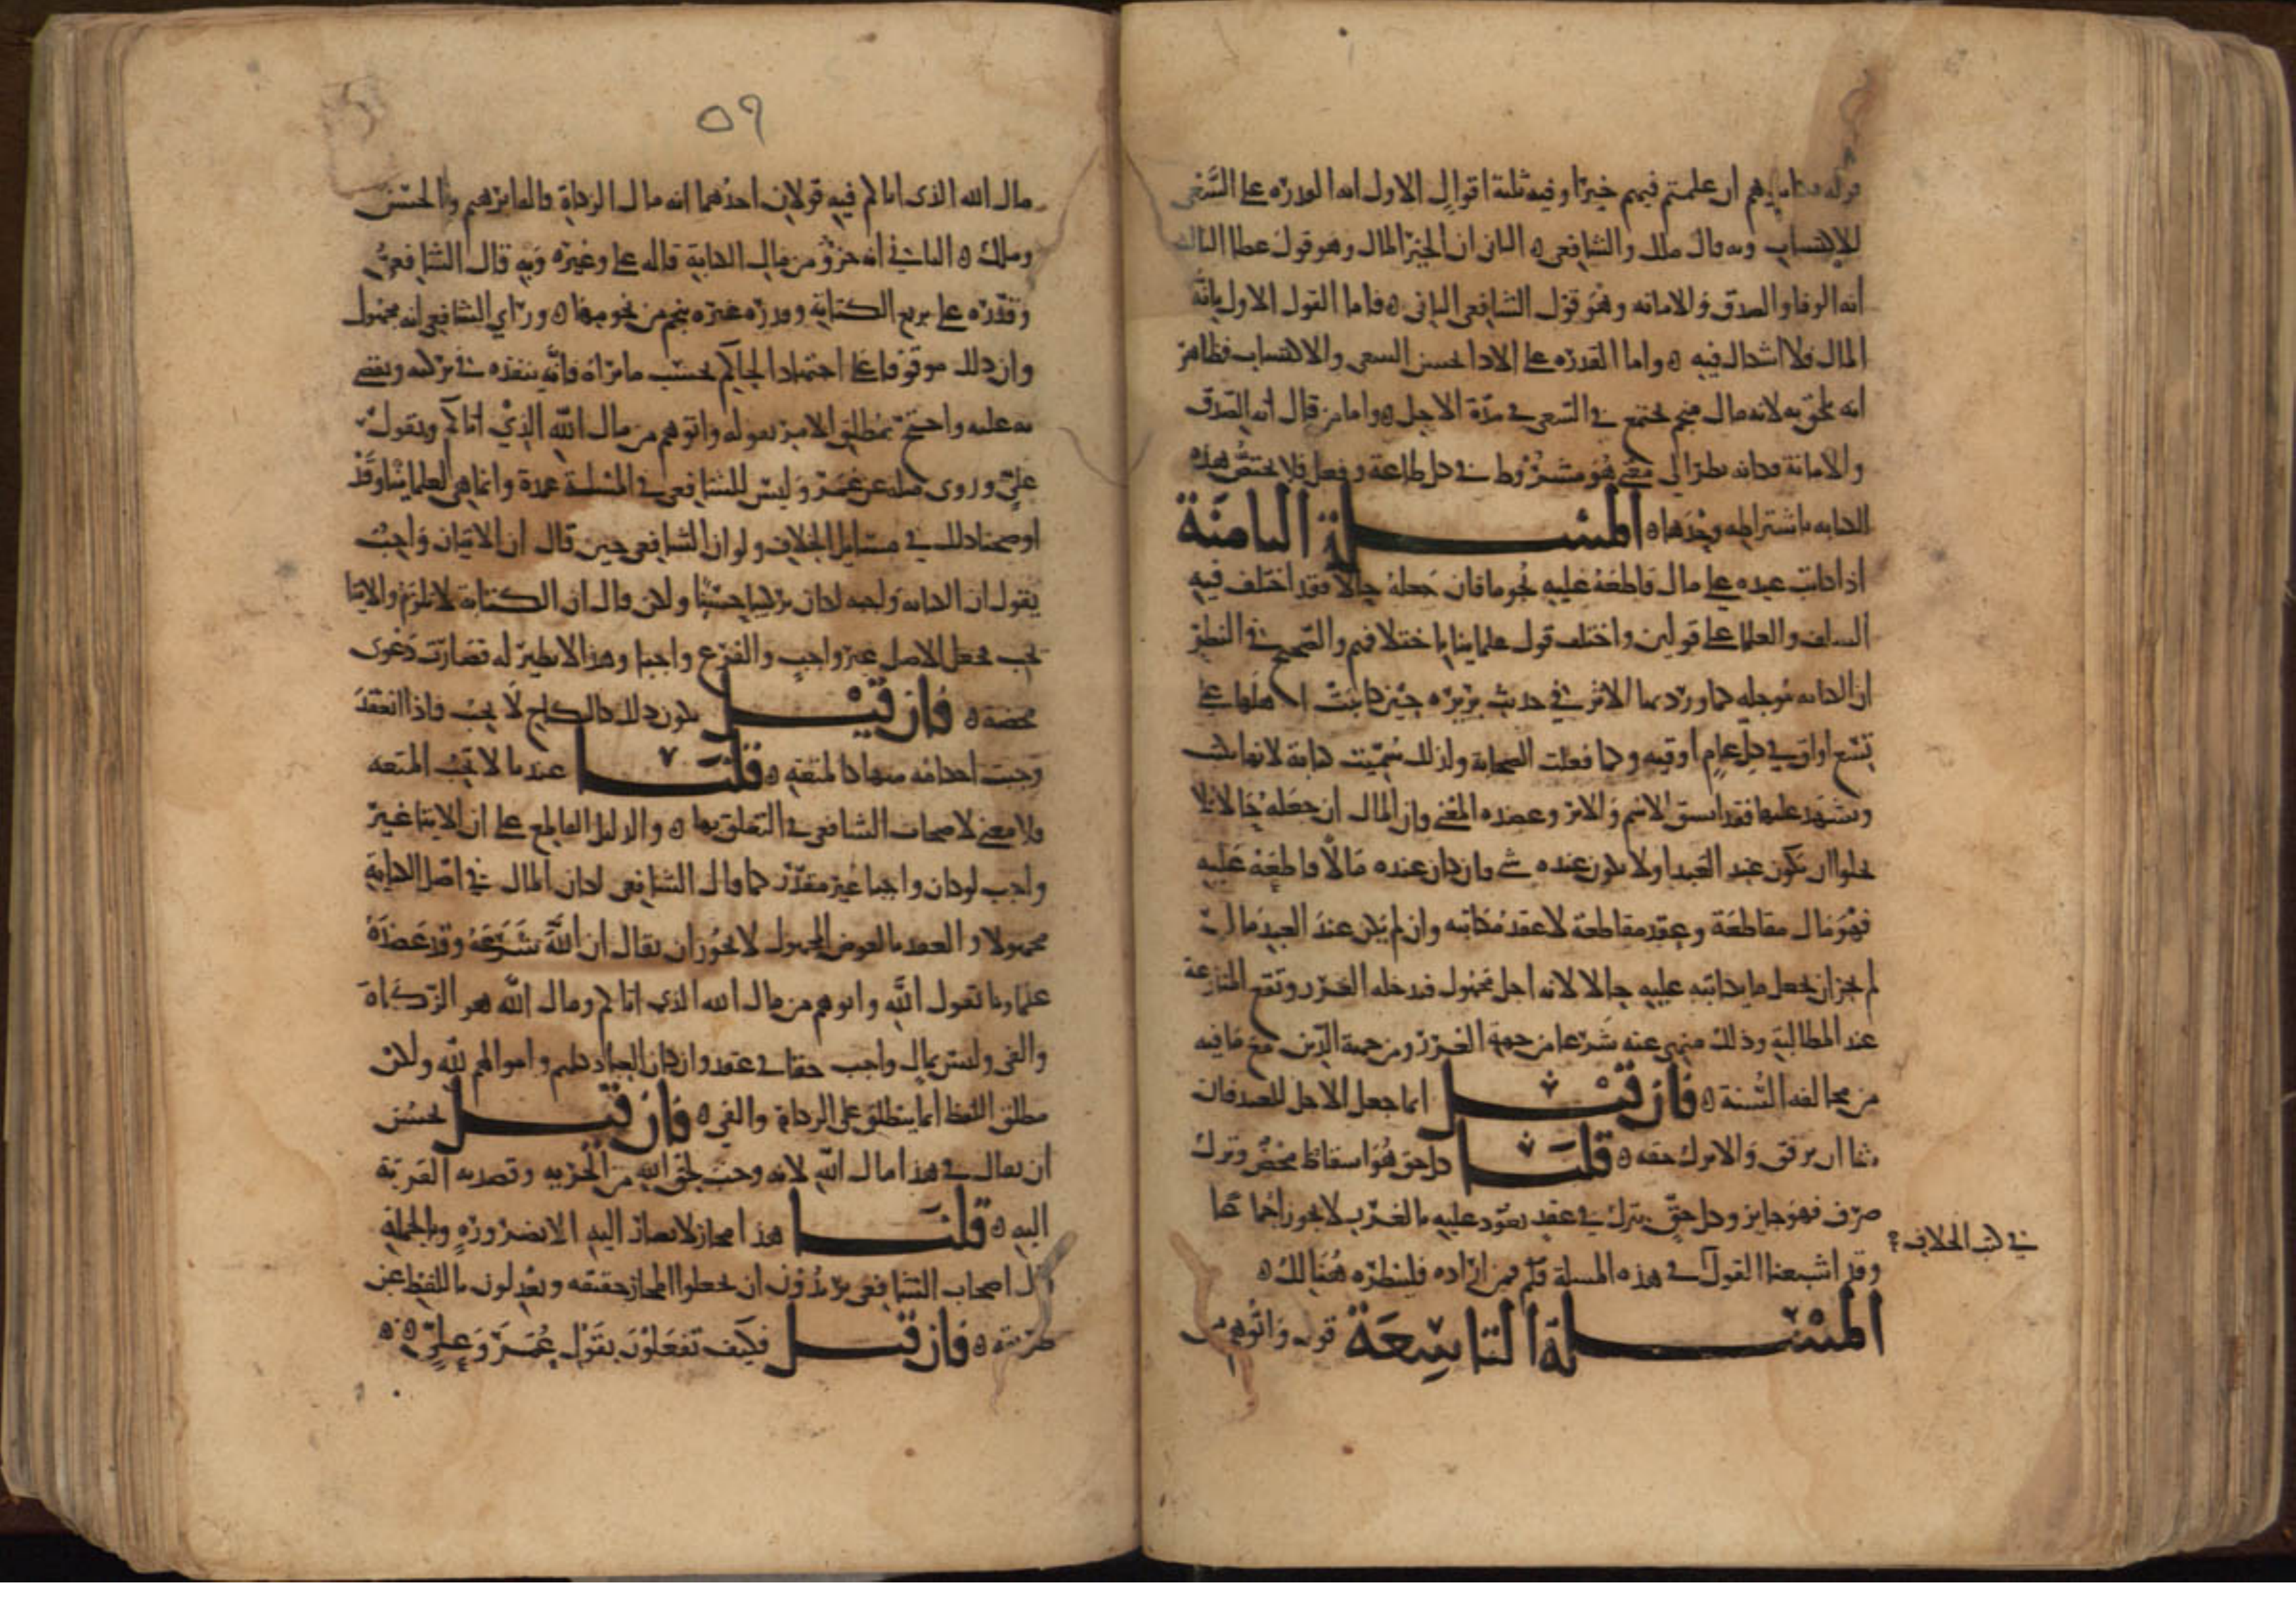 قوله فكاتبوهم ان علمتم فيهم خيرا وفيه ثلثة اقوال الاول انه القدرة على السعى
للاكتساب وبه قال ملك والشافعى ه الثانى ان الخير المال وهو قول عطا الثالث
انه الوفا والصدق والامانه وهو قول الشافعى الثانى ه فاما القول الاول بانه
المال فلا اشكال فيه ه واما القدره على الادا بحسن السعى والاكتساب فظاهر
انه يلحق به لانه مال منجم يجتمع فى السعى فى مدة الاجل ه واما من قال انه الصدق
والامانة فكانه نظر الى معنى هو مشروط فى كل طاعة وفعل فلا تختص هذه
الكتابه باشتراطه وحدها ه المسلة الثامنة
اذا كاتب عبده على مال قاطعه عليه نجوما فان جعله حالا فقد اختلف فيه
السلف والعلما على قولين واختلف قول علماينا باختلافهم والصحيح فى النظر
ان الكتابه موجله كما ورد بها الاثر فى حديث بريره حين كاتبت اهلها على
تسع اواق فى كل عام اوقيه وكما فعلت الصحابة ولذلك سميت كتابة لانها تكتب
ويشهد عليها فقد استسق الاسم والاثر وعضده المعنى فان المال ان جعله حالا فلا
يخلوا ان يكون عند العبد او لا يكون عنده شى فان كان عنده مالا قاطعه عليه
فهو مال مقاطعة وعقد مقاطعة لا عقد مكاتبه وان لم يكن عند العبد مال
لم يجز ان يجعل ما يكاتبه عليه حالا لانه اجل مجهول فدخله الغرر وتقع المنازعة
عند المطالبة وذلك منهى عنه شرعا من جهة الغرر ومن جهة الدين مع ما فيه
من مخالفه السنة ه فان قيل انما جعل الاجل للعبد فان
شا ان يرفق والا ترك حقه ه قلنا كل حق هو اسقاط محض وترك
صرف فهو جايز وكل حق يترك فى عقد يعود عليه بالغرر لا يجوز اجماعا
وقد اشبعنا القول فى هذه المسلة فمن اراده فلينظره هنالك ه
فى كتب الخلاف
المسلة التاسعة قوله واتوهم من
٥٩
مال الله الذى اتاكم فيه قولان احدهما انه مال الزكاة قاله ابرهيم والحسن
وملك ه الثانى انه جزؤ من مال الكتابة قاله على وغيره وبه قال الشافعى
وقدره على بربع الكتابة وقدره غيره بنجم من نجومها ه وراى الشافعى انه مجهول
وان ذلك موقوفا على اجتهاد الحاكم بحسب ما يراه فانه ينفذه فى تركته ويقضى
به عليه واحتج بمطلق الامر بقوله واتوهم من مال الله الذى اتاكم وبقول
على وروى مثله عن عمر وليس للشافعى فى المسلة عمدة وانما هى لعلماينا وقد
اوضحنا ذلك فى مسايل الخلاف ولو ان الشافعى حين قال ان الايتا واجب
يقول ان الكتابه واجبه لكان تركيبا حسنا ولكن قال ان الكتابة لا تلزم والايتا
يجب فجعل الاصل غير واجب والفرع واجبا وهذا لا نظير له فصارت دعوى
محضة ه فان قيل يكون ذلك كالنكاح لا يجب فاذا انعقد
وجبت احكامه منها كالمتعه ه قلنا عندنا لا تجب المتعه
ولا معنى لاصحاب الشافعى فى التعلق بها ه والدليل القاطع على ان الايتا غير
واجب لو كان واجبا غير مقدر كما قال الشافعى لكان المال فى اصل الكتابة
مجهولا والعقد بالعوض المجهول لا يجوز ان يقال ان الله شرعه وقد عضده
علماونا بقول الله واتوهم من مال الله الذى اتاكم ومال الله هو الزكاة
والفى وليس بمال واجب حقا فى عقد وان كان العباد كلهم واموالهم لله ولكن
مطلق اللفظ انما ينطلق على الزكاة والفى ه فان قيل يحسن
ان يقال فى هذا مال الله لانه وجب لحق الله من الحرية وقصد به القربة
اليه ه قلنا هذا مجاز لا يصار اليه الا بضرورة وبالجملة
اصحاب الشافعى يريدون ان يجعلوا المجاز حقيقه ويعدلون باللفظ عن
طريقه ه فان قيل فكيف تفعلون بقول عمر وعلى ه